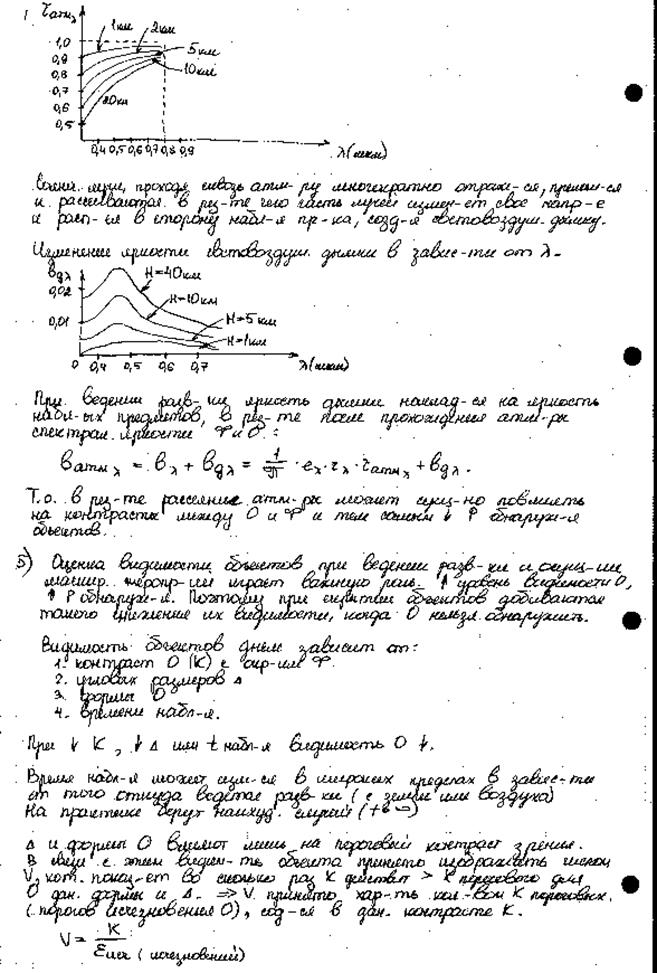 1.
τатмλ
1км 2км
1,0
0,9
0,8
0,7
0,6
0,5
5 км
10 км
20 км
0,4 0,5 0,6 0,7 0,8 0,9
λ(мкм)
Солнеч. лучи, проходя сквозь атм-ру многократно отраж-ся, прелом-ся
и рассеиваются. В рез-те чего часть лучей измен-ет свое напр-е
и расп-ся в сторону набл-я пр-ка, созд-я световоздуш. дымку.
Изменение яркости световоздуш. дымки в завис-ти от λ.
bдλ
0,02
0,01
H=40км
H=10км
H=5 км
H=1 км
0 0,4 0,5 0,6 0,7
λ(мкм)
При ведении разв-ки яркость дымки наклад-ся на яркость
набл-ых предметов, в рез-те после прохождения атм-ры
спектрал. яркости Ф и О:
bатм λ = bλ + bдλ = 1/π · eλ · τλ · τатмλ + bдλ.
Т.о. в рез-те рассеяние атм-ры может сущ-но повлиять
на контрасты между О и Ф и тем самым ↓ P обнаруж-я
объектов.
5) Оценка видимости объектов при ведении разв-ки и осущ-ии
маскир. меропр-ий играет важную роль. ↑ уровень видимости О,
↑ P обнаруж-я. Поэтому при скрытии объектов добиваются
такого снижения их видимости, когда О нельзя обнаружить.
Видимость объектов днем зависит от:
1. контраст О (К) с окр-им Ф.
2. угловых размеров Δ
3. формы О
4. времени набл-я.
При ↓ К, ↓ Δ или t набл-я видимость О ↓.
Время набл-я может изм-ся в широких пределах в завис-ти
от того откуда ведется разв-ка (с земли или воздуха)
На практике берут наихуд. случай
Δ и форма О влияют лишь на пороговый контраст зрения.
В связи с этим видим-ть объекта принято изображать числом
V, кот. показ-ет во сколько раз К действит > К порогового для
О дан. формы и Δ. ⇒ V принято хар-ть кол-вом К пороговых.
(порогов исчезновения О), сод-ся в дан. контрасте К.
V = К / εисч (исчезновений)